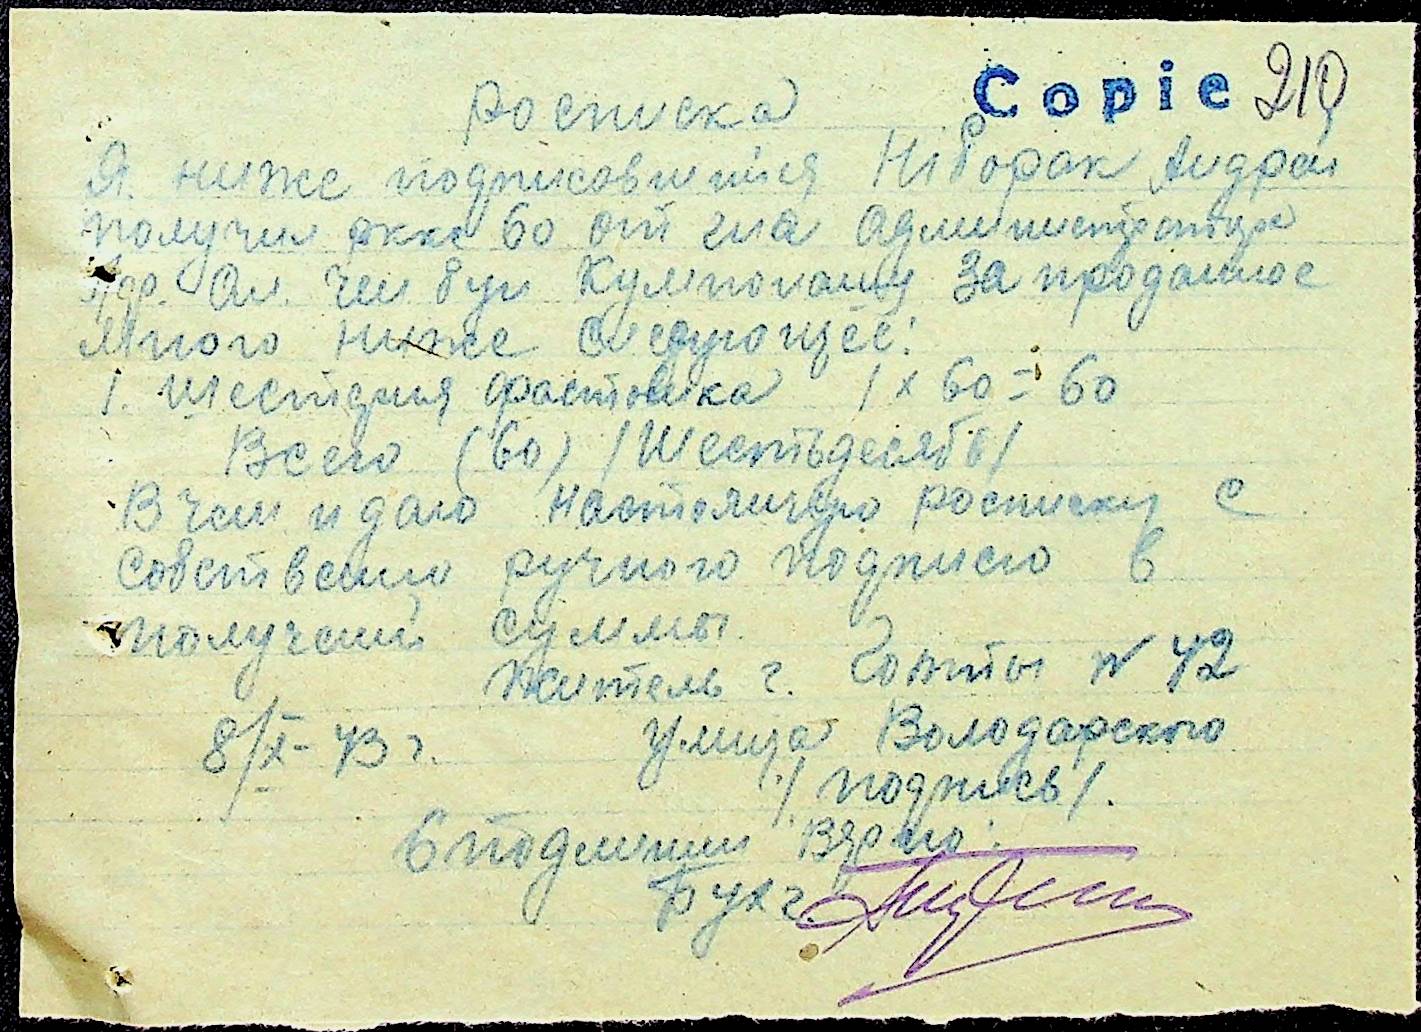 Copie 210
Росписка
Я ниже подписовшийся Ниворак Андрей
получил ркке 60 от г-на Администратора
Ал. Чембул Кумпопану за проданное
мною ниже следующее:
1. Шестерня фростовика 1 x 60 = 60
Всего (60) /Шестьдесят/
В чем и даю настоящую росписку с
собственно ручного подписю в
получений суммы
житель г. Гонты N 42
8/X-43 г. улица Володарского
/подпись/.
С подлинным вярно:
Бухг.